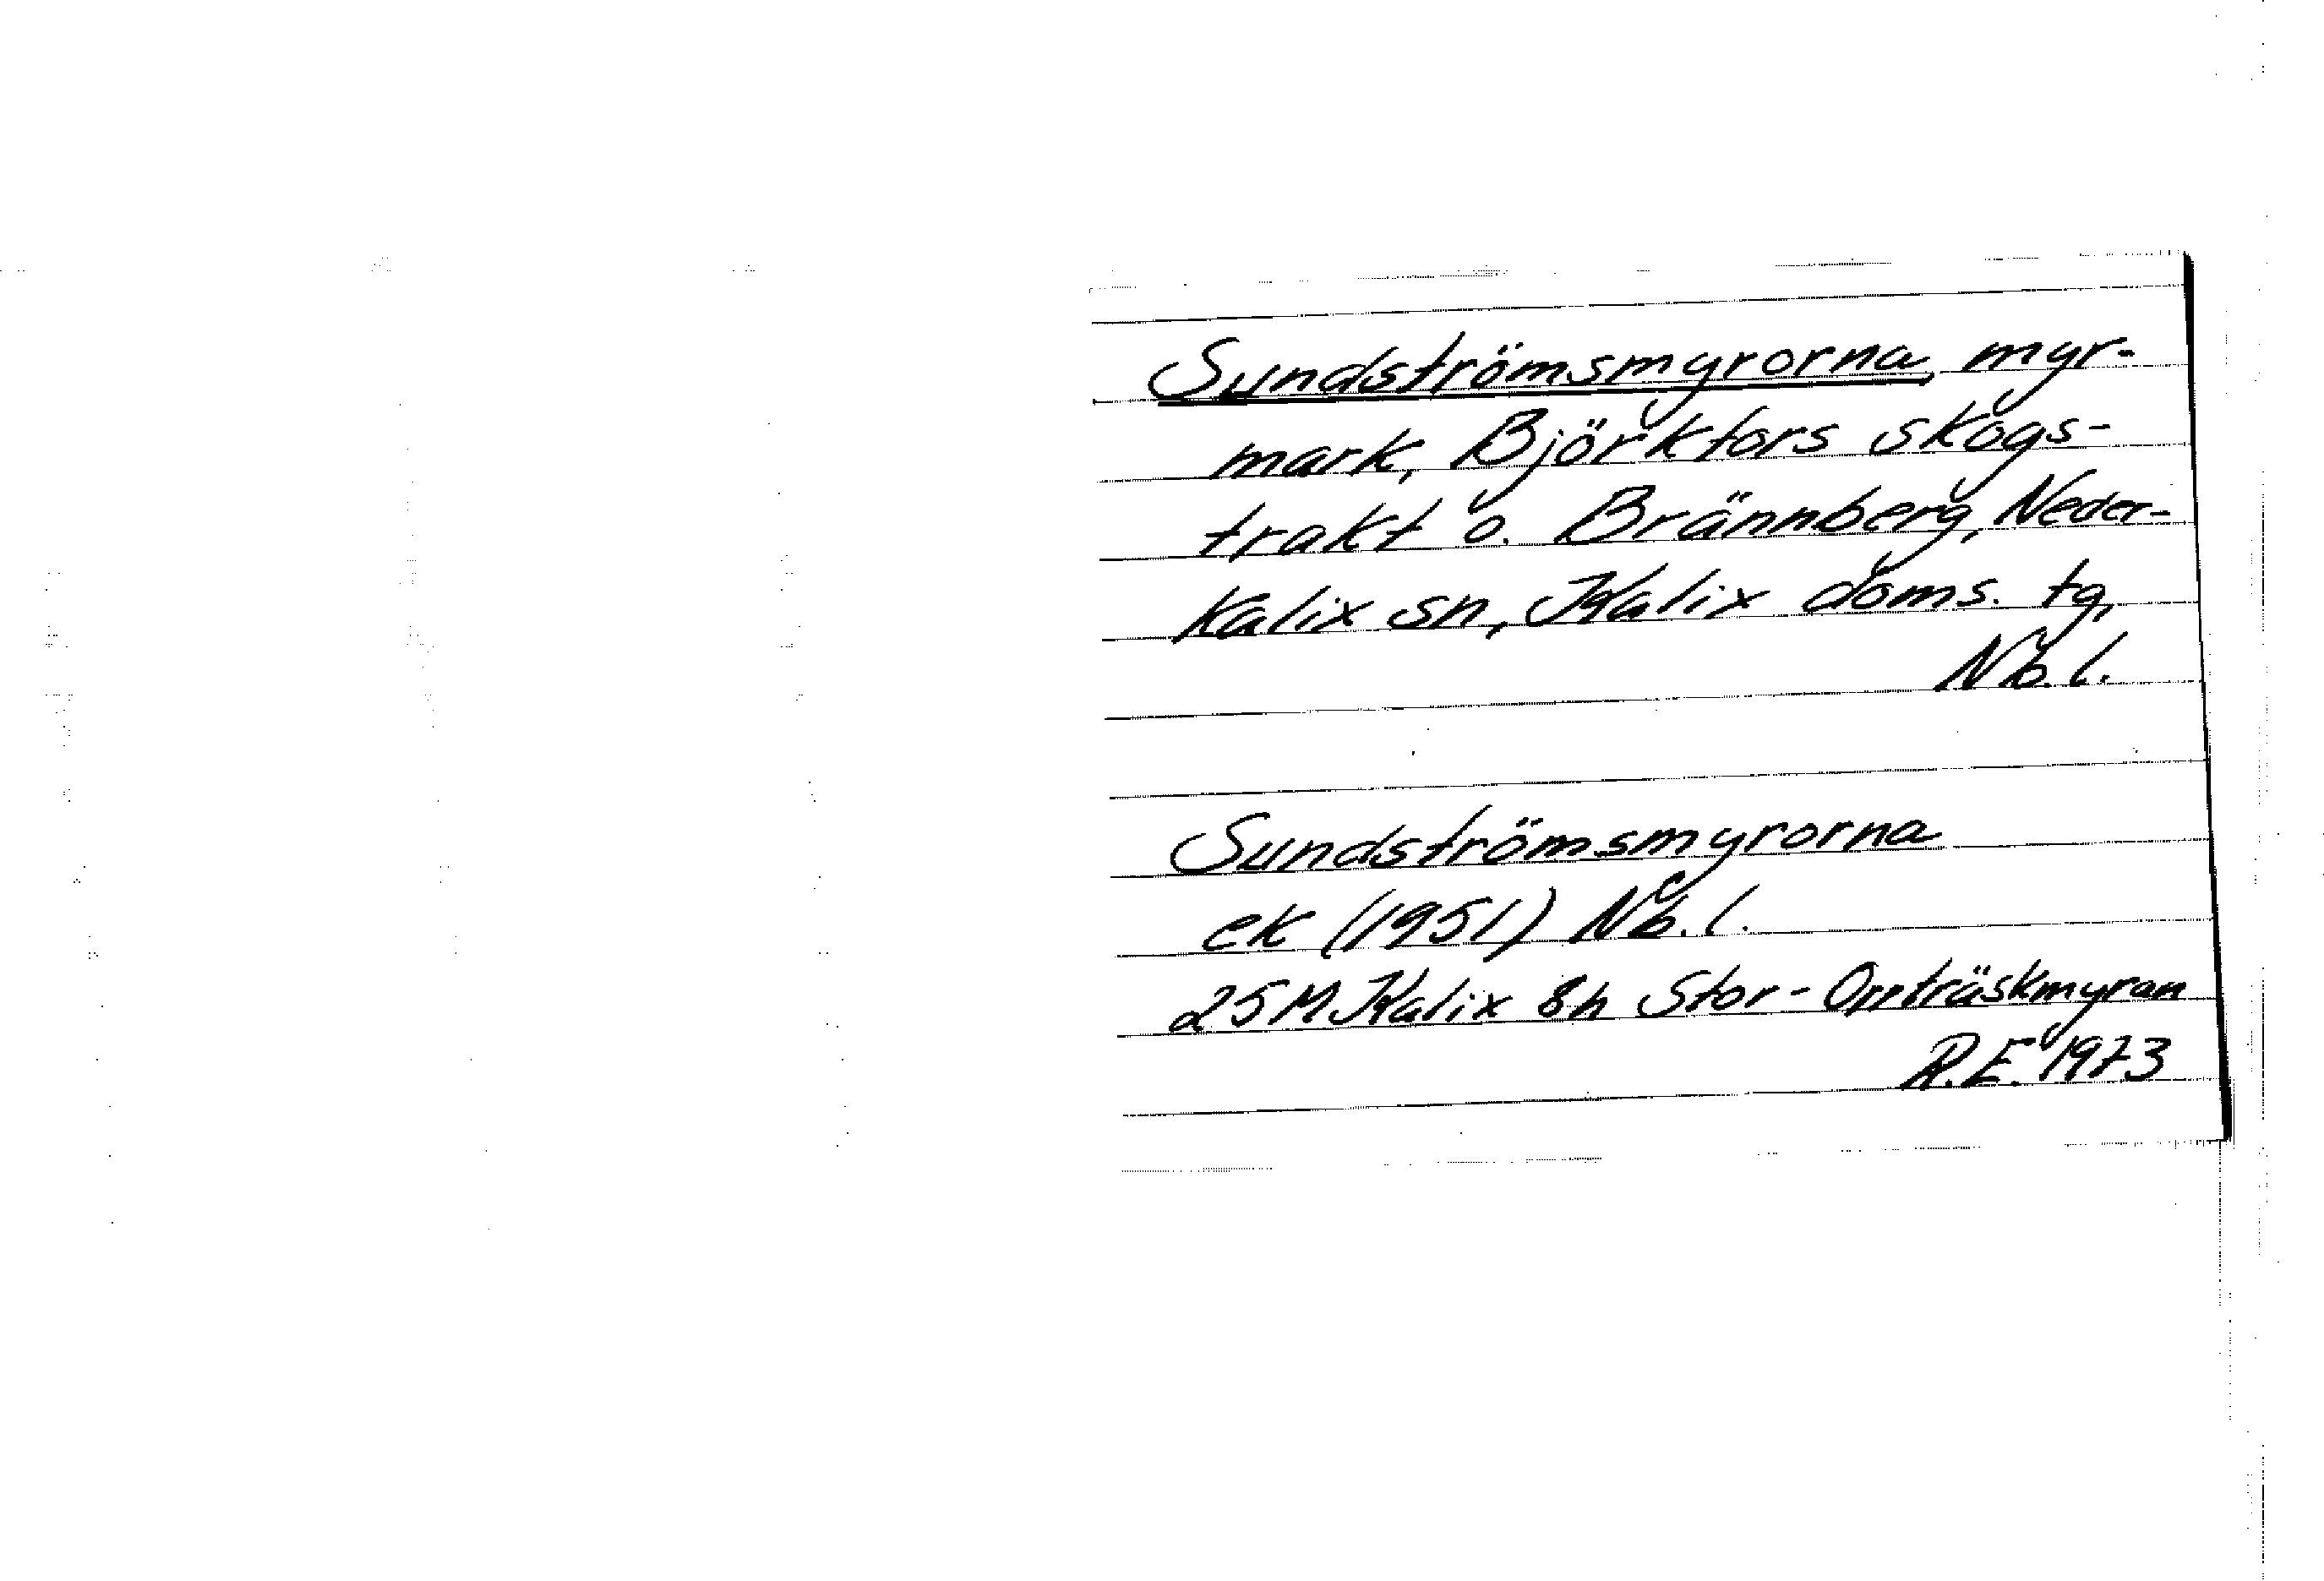 Sundströmsmyrorna, myr-
mark, Björkfors skogs-
trakt o. Brännberg, Neder-
Kalix sn, Kalix doms. tg,
Nb. l.
Sundströmsmyrorna
ek (1951) Nb. l.
25M Kalix 8h Stor-Orrträskmyran
R.E. 1973